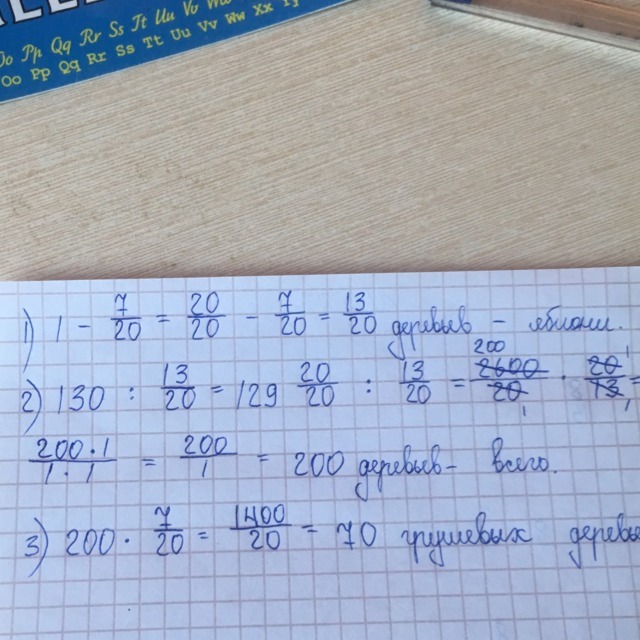 Oo Pp Qq Rr Ss Tt Uu Vv Ww
Oo Pp Qq Rr Ss Tt Uu Vv Ww Xx Yy
1) 1 - 7/20 = 20/20 - 7/20 = 13/20 деревьев - яблони.
2) 130 : 13/20 = 129 20/20 : 13/20 = 2600/20 · 20/13 =
200 1
1 1
200·1/1·1 = 200/1 = 200 деревьев - всего.
3) 200 · 7/20 = 1400/20 = 70 грушевых деревь